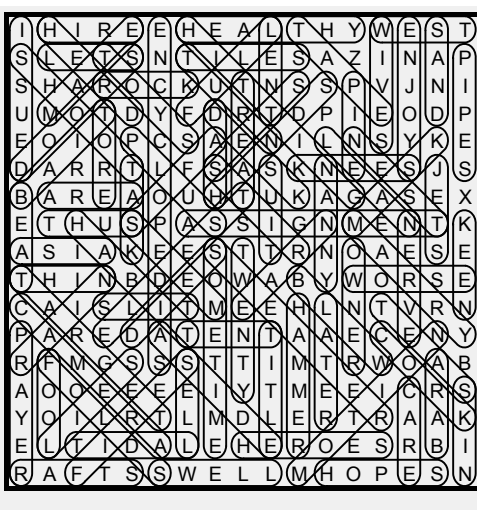 I H I R E E H E A L T H Y W E S T
S L E T S N T I L E S A Z I N A P
S H A R O C K U T N S S P V J N I
U M O T D Y F D R T D P I E O D P
E O I O P C S A E N I L N S Y K E
D A R R T L F S A S K N E E S J S
B A R E A O U H T U K A G A S E X
E T H U S P A S S I G N M E N T K
A S I A K E E S T T R N O A E S E
T H I N B D E O W A B Y W O R S E
C A I S L I T M E E H L N T V R N
P A R E D A T E N T A A E C E N Y
R F M G S S S T T I M T R W O A B
A O O E E E E I Y T M E E I C R S
Y O I L R T L M D L E R T R A A K
E L T I D A L E H E R O E S R B I
R A F T S S W E L L M H O P E S N